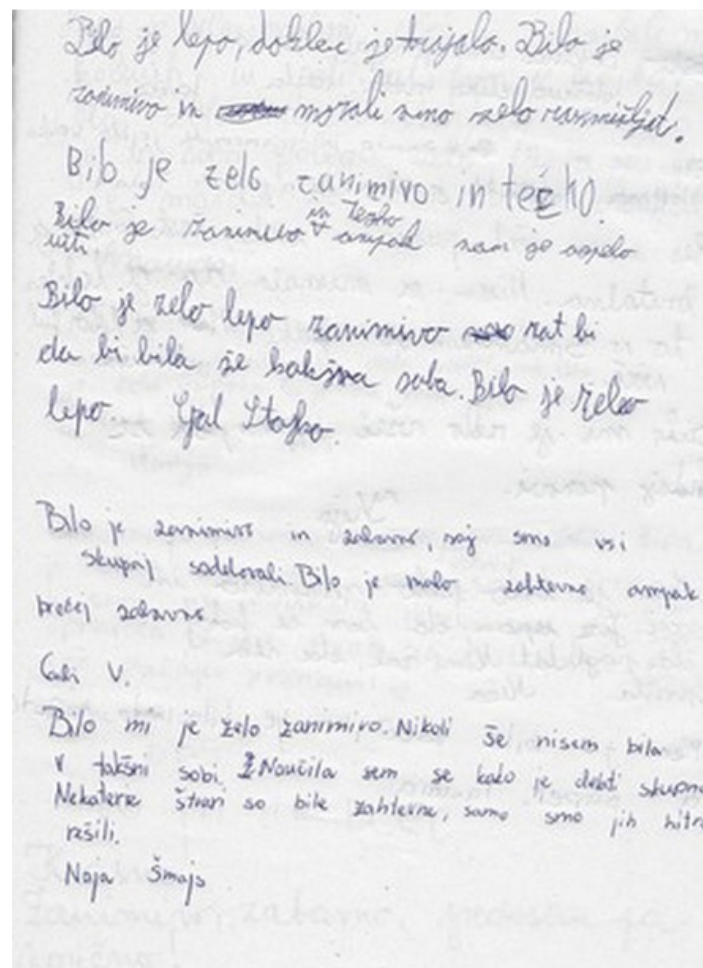 Bilo je lepo, dokler je trajalo. Bilo je
zanimivo in morali smo zelo razmišljat.
Bilo je zelo zanimivo in težko.
Bilo je zanimivo in težko ampak nam je uspelo
uiti
Bilo je zelo lepo zanimivo rat bi
da bi bila še kakšna soba. Bilo je zelo
lepo. Gal
Bilo je zanimivo in zabavno, saj smo vsi
skupaj sodelovali. Bilo je malo zahtevno ampak
precej zabavno
V.
Bilo mi je zelo zanimivo. Nikoli še nisem bila
v takšni sobi. Naučila sem se kako je delati skupno
Nekaterie stvari so bile zahtevne, samo smo jih hitro
rešili.
Naja Šmajs